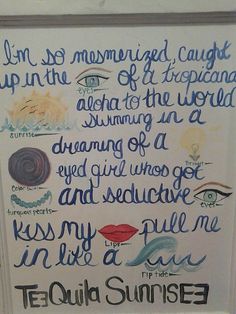 I'm so mesmerized, caught
up in the of a tropicana
eyes
aloha to the world
sunrise
swimming in a
dreaming of a
Bright
eyed girl whos got
turquoise pearls
and seductive
eyes
kiss my pull me
Lips
in like a
rip tide
TEQuila SunrisE